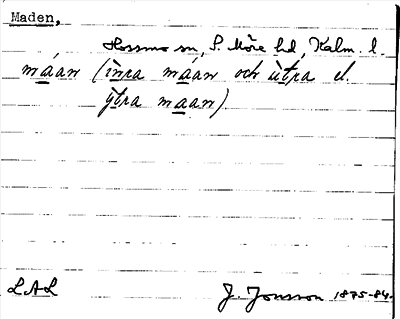 Maden,
Hossmo sn, S. Möre hd, Kalm. l.
måan (ìnra måan och ùtra el
ỳtra maan)
LAL J. Jonsson 1875-84.